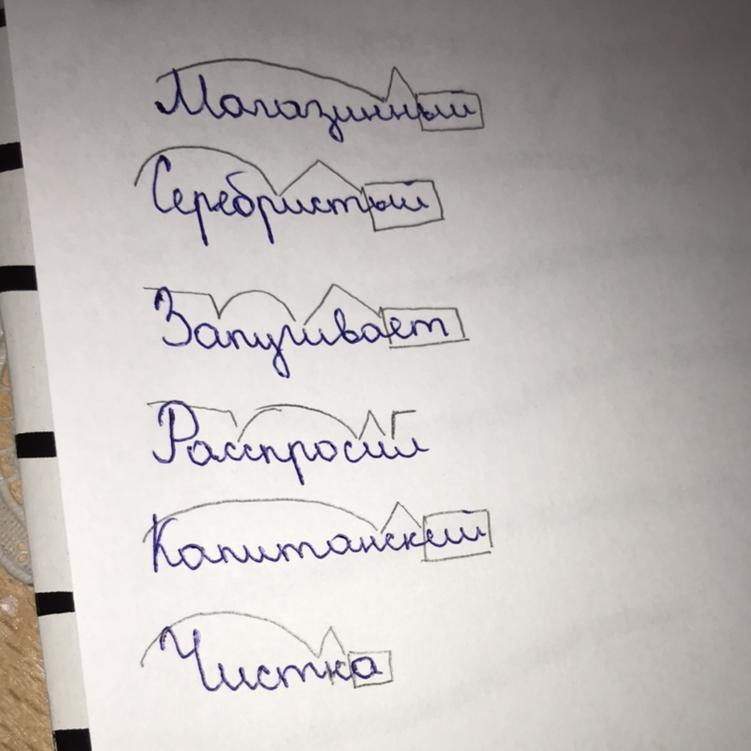 Магазинный
Серебристый
Запугивает
Расспросил
Капитанский
Чистка